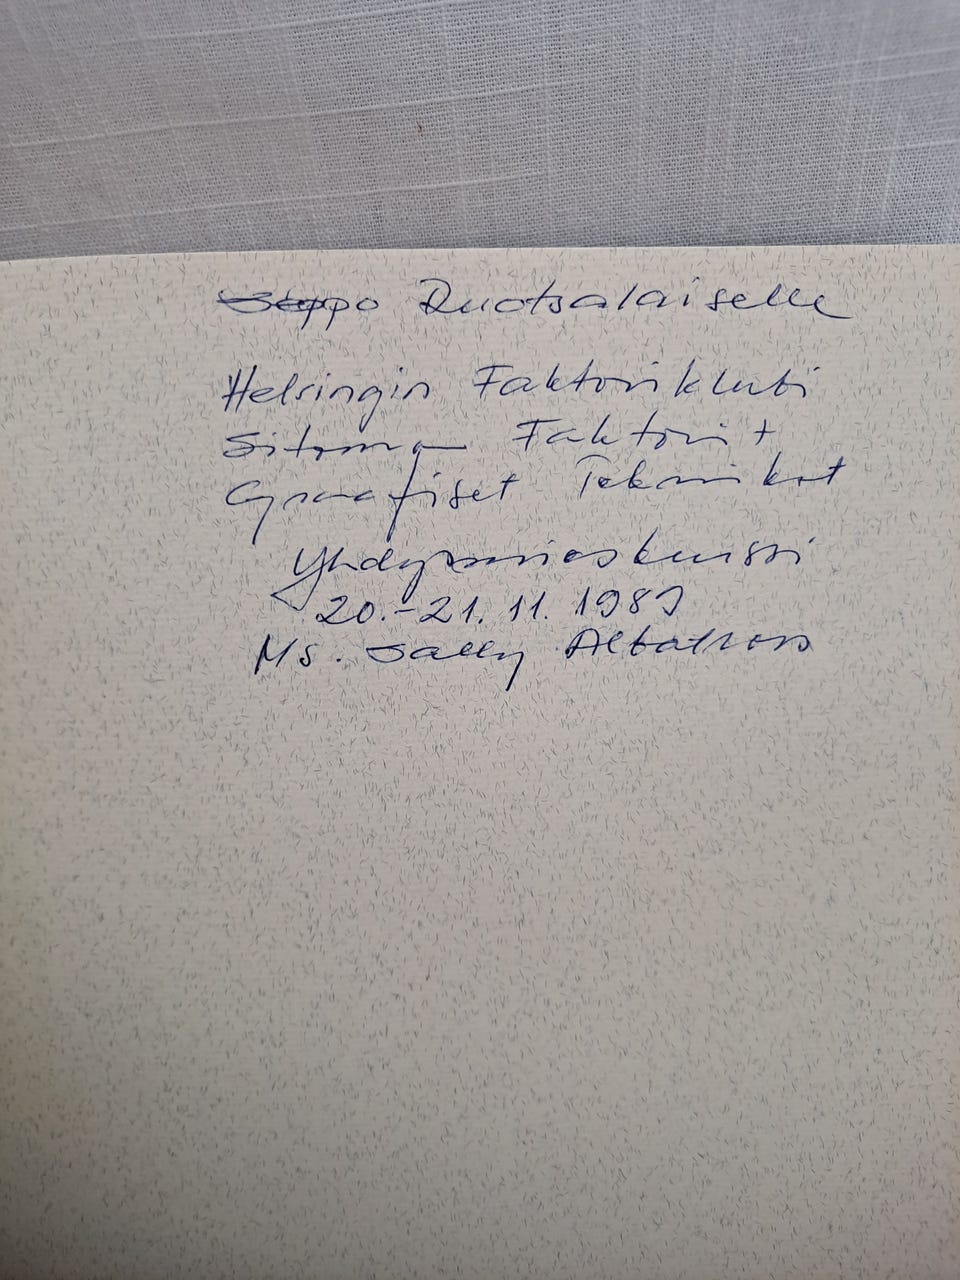 Seppo Ruotsalaiselle
Helsingin Faktoriklubi
Faktorit
Graafiset Teknikot
Yhdysmieskurssi
20.-21.11.1989
Ms. Sally Albatross